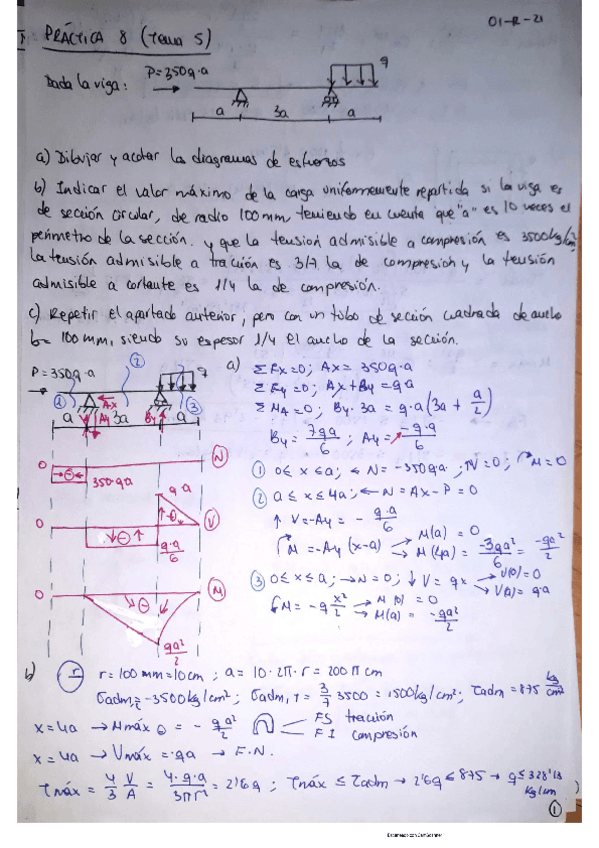 01-R-21
PRÁCTICA 8 (Tema 5)
Dada la viga: P=350q·a q
a 3a a
a) Dibujar y acotar los diagramas de esfuerzos
b) Indicar el valor máximo de la carga uniformemente repartida si la viga es
de sección circular, de radio 100mm, teniendo en cuenta que "a" es 10 veces el
perímetro de la sección. y que la tensión admisible a compresión es 3500kg/cm²
la tensión admisible a tracción es 3/7 la de compresión y la tensión
admisible a cortante es 1/4 la de compresión.
c) Repetir el apartado anterior, pero con un tubo de sección cuadrada de ancho
b=100mm, siendo su espesor 1/4 el ancho de la sección.
P=350q·a ② q
① Ax Ay By ③
a 3a a
a) ΣFx=0; Ax = 350q·a
ΣFy=0; Ay+By=qa
ΣMA=0; By·3a = q·a(3a + a/2)
By = 7qa/6; Ay= -q·a/6
0 ⊖ 350·qa N
① 0≤x≤a; ← N=-350qa; ↑V=0; M=0
② a≤x≤4a; ← N=Ax-P=0
↑ V=-Ay = - q·a/6
M=-Ay(x-a) → M(a) = 0
→ M(4a) = -3qa²/6 = -qa²/2
q·a
0 ↑⊖↓ V
↓⊖↑
q·a/6
③ 0≤x≤a; → N=0; ↓ V=qx → V(0)=0
→ V(a)=q·a
M=-q x²/2 → M(0) = 0
→ M(a)= -qa²/2
0 ⊖ M
qa²/2
b) r r=100mm=10cm; a=10·2π·r=200π cm
σadm,c=-3500kg/cm²; σadm,T = 3/7 3500 = 1500kg/cm²; τadm=875 kg/cm²
x=4a → Mmáx ⊖ = - qa²/2 FS tracción
FI compresión
x=4a → Vmáx=qa → F.N.
τmáx = 4/3 V/A = 4·q·a/3πr² = 2'6q; τmáx ≤ τadm → 2'6q ≤ 875 → q≤328'13 kg/cm
①
Escaneado con CamScanner